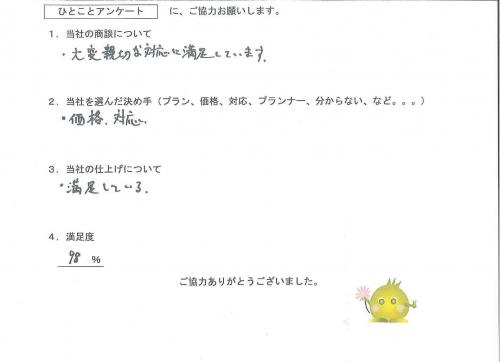 ひとことアンケート に、ご協力お願いします。
１．当社の商談について
・大変親切な対応に満足しています。
２．当社を選んだ決め手（プラン、価格、対応、プランナー、分からない、など。。。）
・価格、対応。
３．当社の仕上げについて
・満足している。
４．満足度
98 ％
ご協力ありがとうございました。